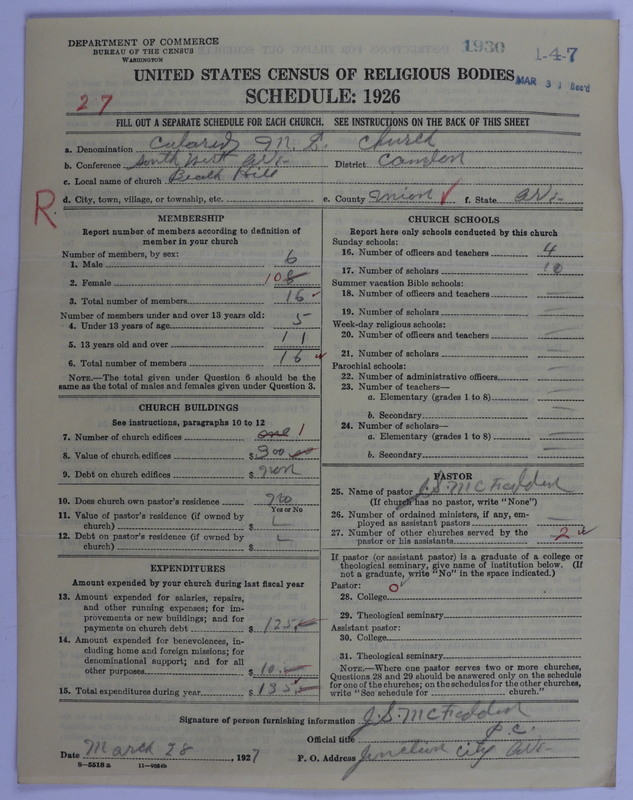 DEPARTMENT OF COMMERCE
BUREAU OF THE CENSUS
WASHINGTON
1930
1-4-7
MAR 31 Rec'd
UNITED STATES CENSUS OF RELIGIOUS BODIES
SCHEDULE: 1926
27
FILL OUT A SEPARATE SCHEDULE FOR EACH CHURCH. SEE INSTRUCTIONS ON THE BACK OF THIS SHEET
a. Denomination Colored M. E. Church
b. Conference South West Ark- District Camden
c. Local name of church Beach Hill
R.
d. City, town, village, or township, etc. e. County Union f. State Ark-
MEMBERSHIP
Report number of members according to definition of
member in your church
Number of members, by sex:
1. Male 6
2. Female 10 8
3. Total number of members 16
Number of members under and over 13 years old:
4. Under 13 years of age 5
5. 13 years old and over 11
6. Total number of members 16
NOTE.—The total given under Question 6 should be the
same as the total of males and females given under Question 3.
CHURCH BUILDINGS
See instructions, paragraphs 10 to 12
7. Number of church edifices one 1
8. Value of church edifices $300
9. Debt on church edifices $ non
10. Does church own pastor's residence no
Yes or No
11. Value of pastor's residence (if owned by
church) $
12. Debt on pastor's residence (if owned by
church) $
EXPENDITURES
Amount expended by your church during last fiscal year
13. Amount expended for salaries, repairs,
and other running expenses; for im-
provements or new buildings; and for
payments on church debt $ 125
14. Amount expended for benevolences, in-
cluding home and foreign missions; for
denominational support; and for all
other purposes $ 10
15. Total expenditures during year $ 135
CHURCH SCHOOLS
Report here only schools conducted by this church
Sunday schools:
16. Number of officers and teachers 4
17. Number of scholars 10
Summer vacation Bible schools:
18. Number of officers and teachers
19. Number of scholars
Week-day religious schools:
20. Number of officers and teachers
21. Number of scholars
Parochial schools:
22. Number of administrative officers
23. Number of teachers—
a. Elementary (grades 1 to 8)
b. Secondary
24. Number of scholars—
a. Elementary (grades 1 to 8)
b. Secondary
PASTOR
25. Name of pastor J. S. McFadden
(If church has no pastor, write "None")
26. Number of ordained ministers, if any, em-
ployed as assistant pastors
27. Number of other churches served by the
pastor or his assistants 2
If pastor (or assistant pastor) is a graduate of a college or
theological seminary, give name of institution below. (If
not a graduate, write "No" in the space indicated.)
Pastor:
28. College 0
29. Theological seminary
Assistant pastor:
30. College
31. Theological seminary
NOTE.—Where one pastor serves two or more churches,
Questions 28 and 29 should be answered only on the schedule
for one of the churches; on the schedules for the other churches,
write "See schedule for church."
Signature of person furnishing information J. S. McFadden
Official title P. C.
Date March 28, 1927 P. O. Address Junction City Ark-
8—5518 a